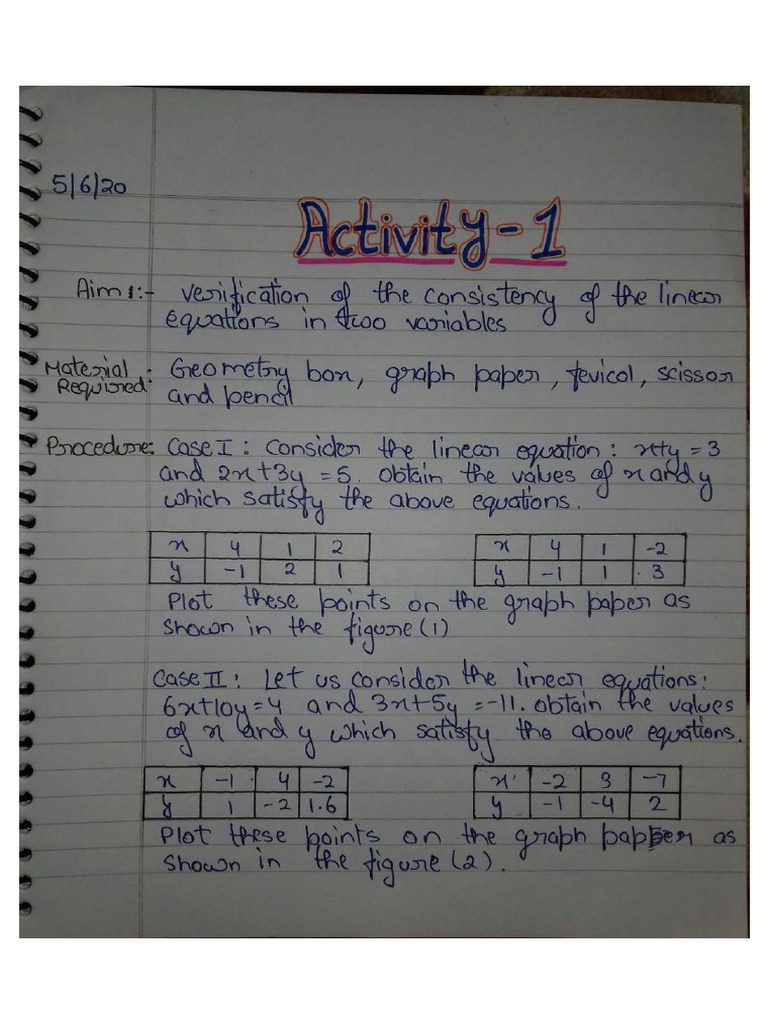 5/6/20
Activity-1
Aim 1:- Verification of the consistency of the linear
equations in two variables
Material Required: Geometry box, graph paper, fevicol, scissor
and pencil
Procedure: Case I: Consider the linear equation: x+y = 3
and 2x+3y = 5. obtain the values of x and y
which satisfy the above equations.
x 4 1 2
y -1 2 1
x 4 1 -2
y -1 1 3
Plot these points on the graph paper as
shown in the figure (1)
Case II: Let us consider the linear equations:
6x+10y=4 and 3x+5y =-11. obtain the values
of x and y which satisfy the above equations.
x -1 4 -2
y 1 -2 1.6
x -2 3 -7
y -1 -4 2
Plot these points on the graph paper as
shown in the figure (2).